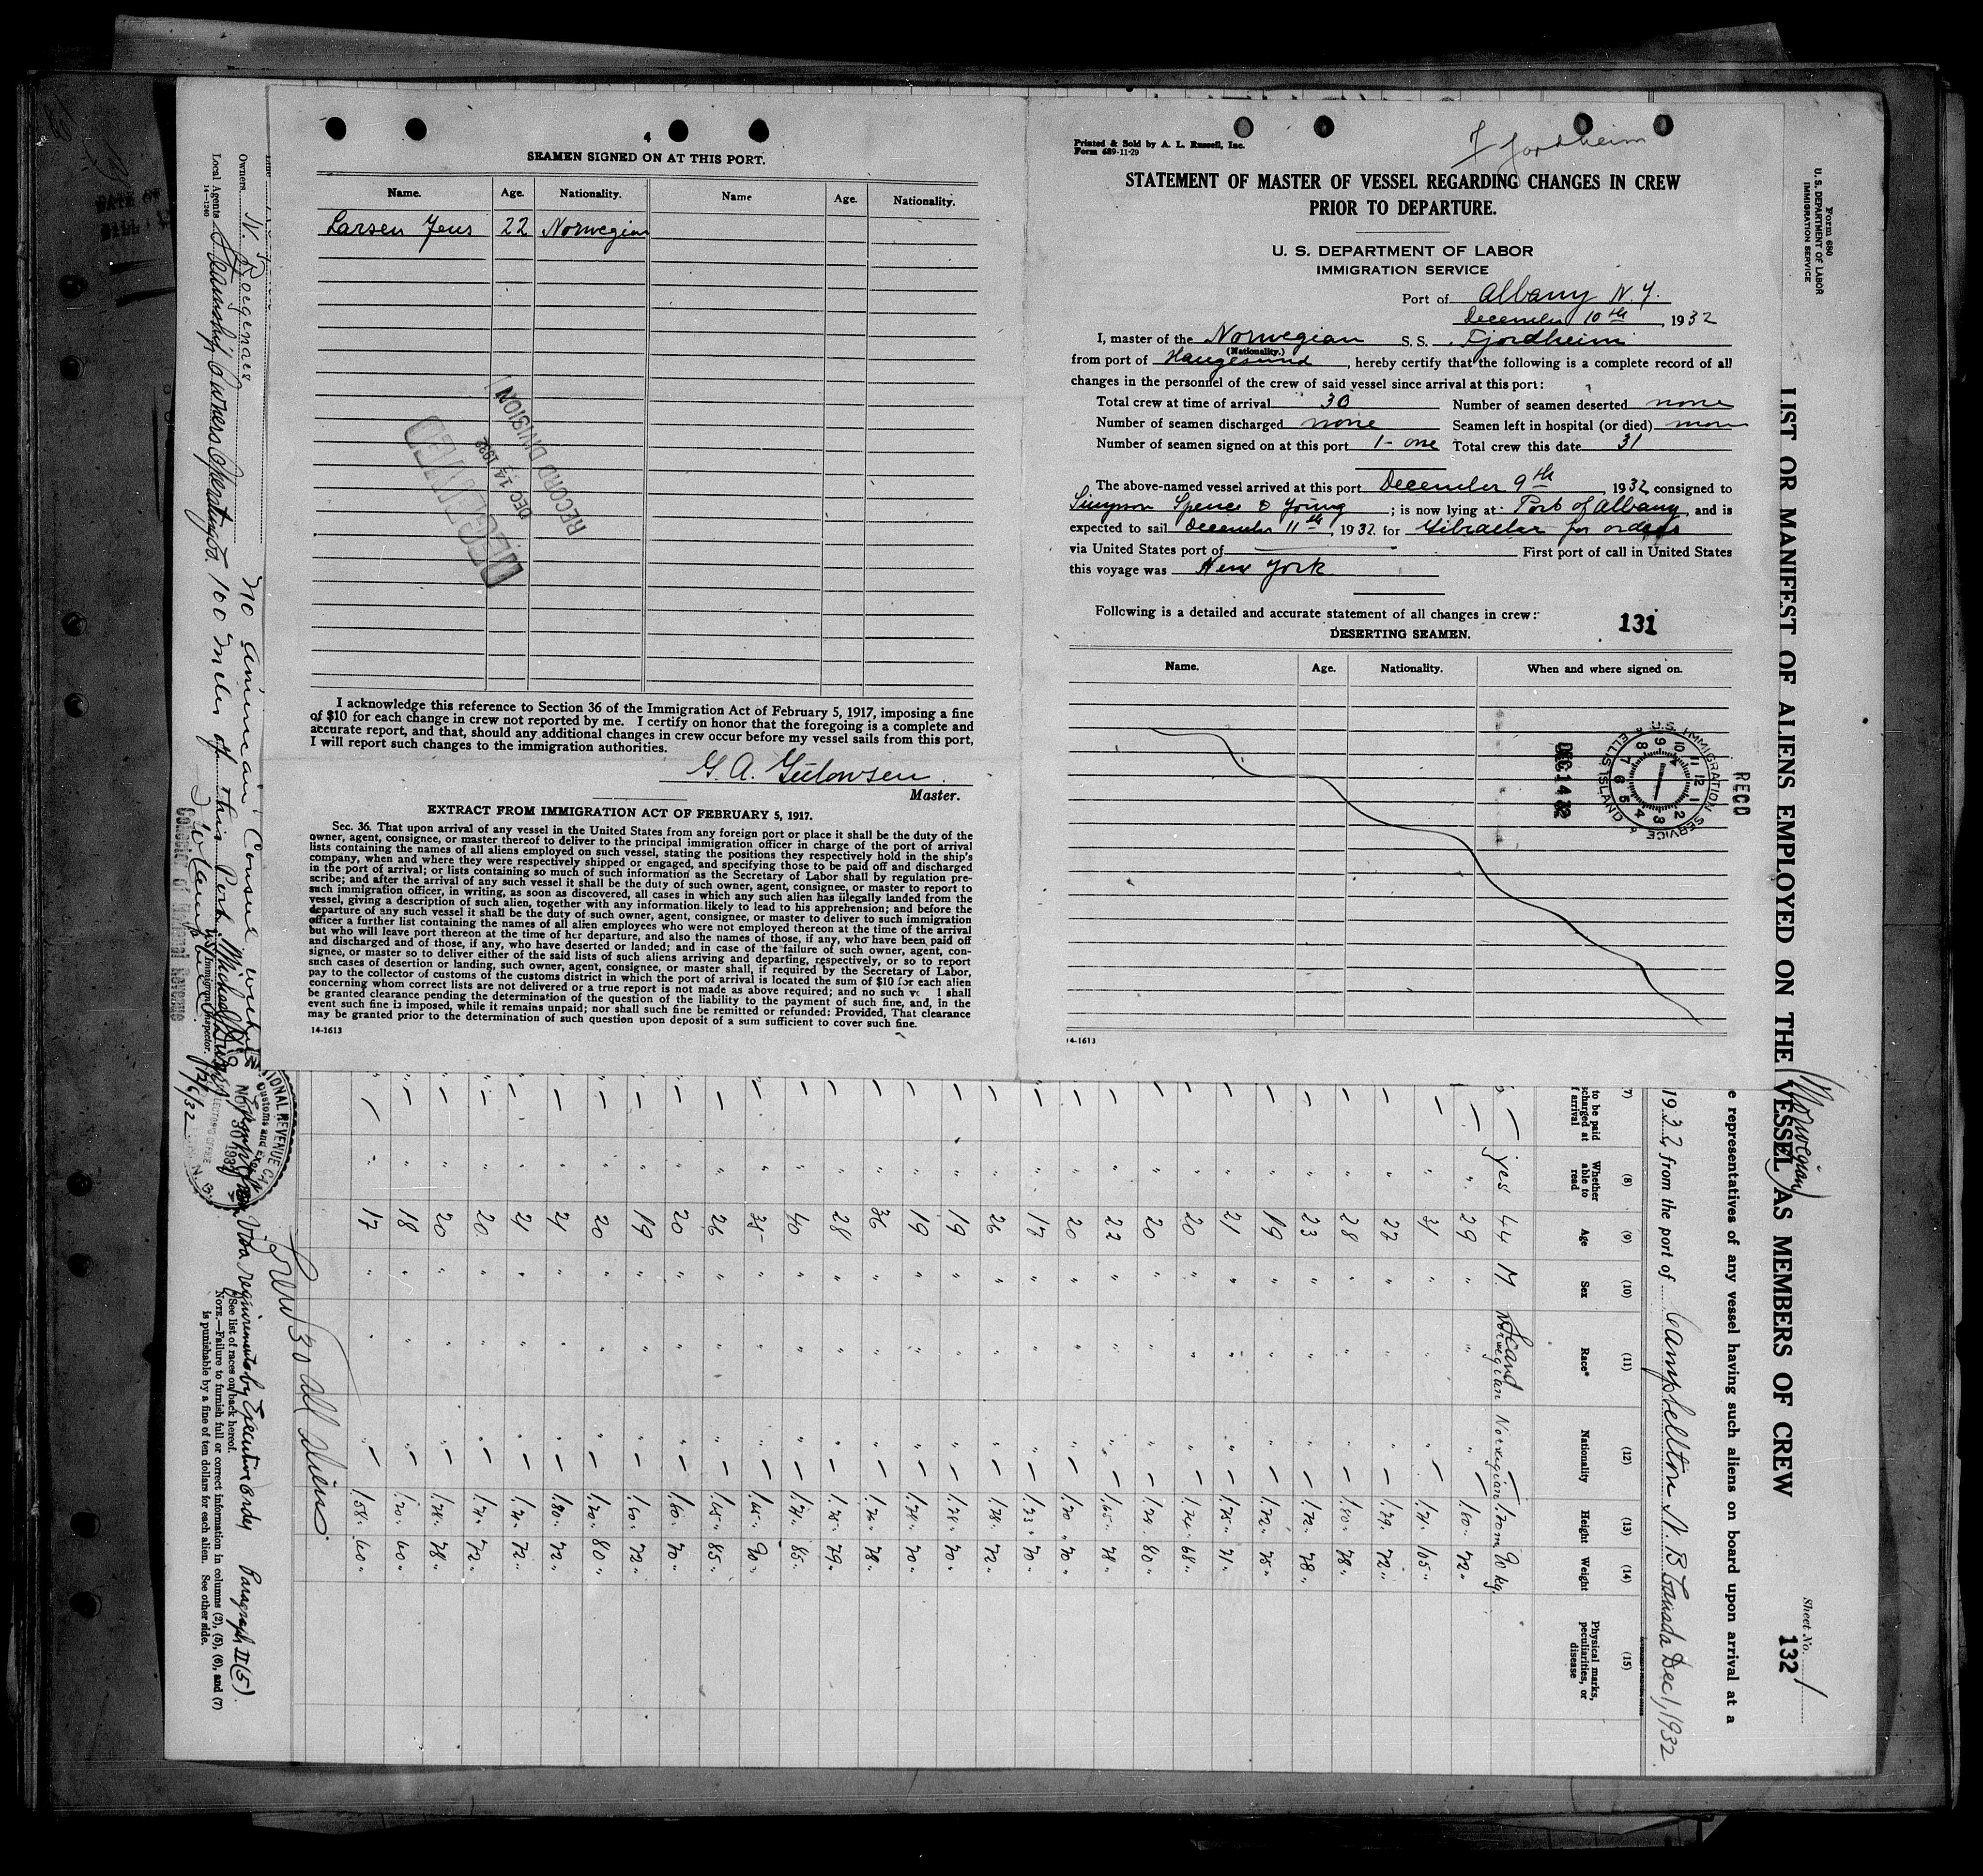 4
SEAMEN SIGNED ON AT THIS PORT.
Name. Age. Nationality. Name Age. Nationality.
Larsen Jens 22 Norwegian
RECEIVED
DEC 14 1932
RECORD DIVISION
I acknowledge this reference to Section 36 of the Immigration Act of February 5, 1917, imposing a fine
of $10 for each change in crew not reported by me. I certify on honor that the foregoing is a complete and
accurate report, and that, should any additional changes in crew occur before my vessel sails from this port,
I will report such changes to the immigration authorities.
G. A. Gulowsen
Master.
EXTRACT FROM IMMIGRATION ACT OF FEBRUARY 5, 1917.
Sec. 36. That upon arrival of any vessel in the United States from any foreign port or place it shall be the duty of the
owner, agent, consignee, or master thereof to deliver to the principal immigration officer in charge of the port of arrival
lists containing the names of all aliens employed on such vessel, stating the positions they respectively hold in the ship's
company, when and where they were respectively shipped or engaged, and specifying those to be paid off and discharged
in the port of arrival; or lists containing so much of such information as the Secretary of Labor shall by regulation pre-
scribe; and after the arrival of any such vessel it shall be the duty of such owner, agent, consignee, or master to report to
such immigration officer, in writing, as soon as discovered, all cases in which any such alien has illegally landed from the
vessel, giving a description of such alien, together with any information likely to lead to his apprehension; and before the
departure of any such vessel it shall be the duty of such owner, agent, consignee, or master to deliver to such immigration
officer a further list containing the names of all alien employees who were not employed thereon at the time of the arrival
but who will leave port thereon at the time of her departure, and also the names of those, if any, who have been paid off
and discharged and of those, if any, who have deserted or landed; and in case of the failure of such owner, agent, con-
signee, or master so to deliver either of the said lists of such aliens arriving and departing, respectively, or so to report
such cases of desertion or landing, such owner, agent, consignee, or master shall, if required by the Secretary of Labor,
pay to the collector of customs of the customs district in which the port of arrival is located the sum of $10 for each alien
concerning whom correct lists are not delivered or a true report is not made as above required; and no such ve l shall
be granted clearance pending the determination of the question of the liability to the payment of such fine, and, in the
event such fine is imposed, while it remains unpaid; nor shall such fine be remitted or refunded: Provided, That clearance
may be granted prior to the determination of such question upon deposit of a sum sufficient to cover such fine.
14-1613
Printed & Sold by A. L. Russell, Inc.
Form 689-11-29
Fjordheim
STATEMENT OF MASTER OF VESSEL REGARDING CHANGES IN CREW
PRIOR TO DEPARTURE.
U. S. DEPARTMENT OF LABOR
IMMIGRATION SERVICE
Port of Albany N.Y.
December 10th, 1932
I, master of the Norwegian S. S. Fjordheim
(Nationality.)
from port of Haugesund, hereby certify that the following is a complete record of all
changes in the personnel of the crew of said vessel since arrival at this port:
Total crew at time of arrival 30 Number of seamen deserted none
Number of seamen discharged none Seamen left in hospital (or died)
Number of seamen signed on at this port 1- one Total crew this date 31
The above-named vessel arrived at this port December 9th, 1932 consigned to
Simpson Spence & Young; is now lying at Port of Albany, and is
expected to sail December 11th, 1932 for Gibraltar for orders
via United States port of First port of call in United States
this voyage was New York
Following is a detailed and accurate statement of all changes in crew:
DESERTING SEAMEN.
131
Name. Age. Nationality. When and where signed on.
U.S. IMMIGRATION SERVICE ELLIS ISLAND
RECD
DEC 14 32
14-1613
Form 680
U. S. DEPARTMENT OF LABOR
IMMIGRATION SERVICE
LIST OR MANIFEST OF ALIENS EMPLOYED ON THE VESSEL AS MEMBERS OF CREW
(Norwegian)
Sheet No. 1
132
e representatives of any vessel having such aliens on board upon arrival at a
1932, from the port of Campbellton N.B. Canada Dec 1, 1932
(7) (8) (9) (10) (11) (12) (13) (14) (15)
to be paid scharged at f arrival Whether able to read Age Sex Race* Nationality Height Weight Physical marks, peculiarities, or disease
— yes 44 M Scand Norwegian Norwegian 1.70 m 90 kg.
— " 29 " " " — 1.80 " 72 "
— " 31 " " " — 1.71 " 105 "
— " 27 " " " — 1.79 " 72 "
— " 28 " " " — 1.80 " 78 "
— " 23 " " " — 1.72 " 78 "
— " 19 " " " — 1.72 " 75 "
— " 21 " " " — 1.75 " 71 "
— " 20 " " " — 1.74 " 68 "
— " 20 " " " — 1.74 " 80 "
— " 22 " " " — 1.65 " 78 "
— " 20 " " " — 1.70 " 70 "
— " 17 " " " — 1.73 " 70 "
— " 26 " " " — 1.78 " 72 "
— " 19 " " " — 1.78 " 70 "
— " 19 " " " — 1.78 " 70 "
— " 36 " " " — 1.76 " 78 "
— " 28 " " " — 1.75 " 79 "
— " 40 " " " — 1.71 " 85 "
— " 35 " " " — 1.65 " 90 "
— " 26 " " " — 1.65 " 85 "
— " 20 " " " — 1.60 " 70 "
— " 19 " " " — 1.60 " 72 "
— " 20 " " " — 1.70 " 80 "
— " 21 " " " — 1.80 " 72 "
— " 21 " " " — 1.71 " 72 "
— " 20 " " " — 1.71 " 72 "
— " 20 " " " — 1.78 " 78 "
— " 18 " " " — 1.70 " 60 "
— " 17 " " " — 1.58 " 60 "
Crew 30 all Aliens
No American Consul within
100 miles of this Port
Owners
Local Agents Steamship Owners Operating Co.
14—1240
Immigrant Inspector.
12/6/32
NOV 30 1932
Visa requirements by Executive Order Paragraph II (5).
*See list of races on back hereof.
NOTE.—Failure to furnish full or correct information in columns (2), (5), (6), and (7)
is punishable by a fine of ten dollars for each alien. See other side.